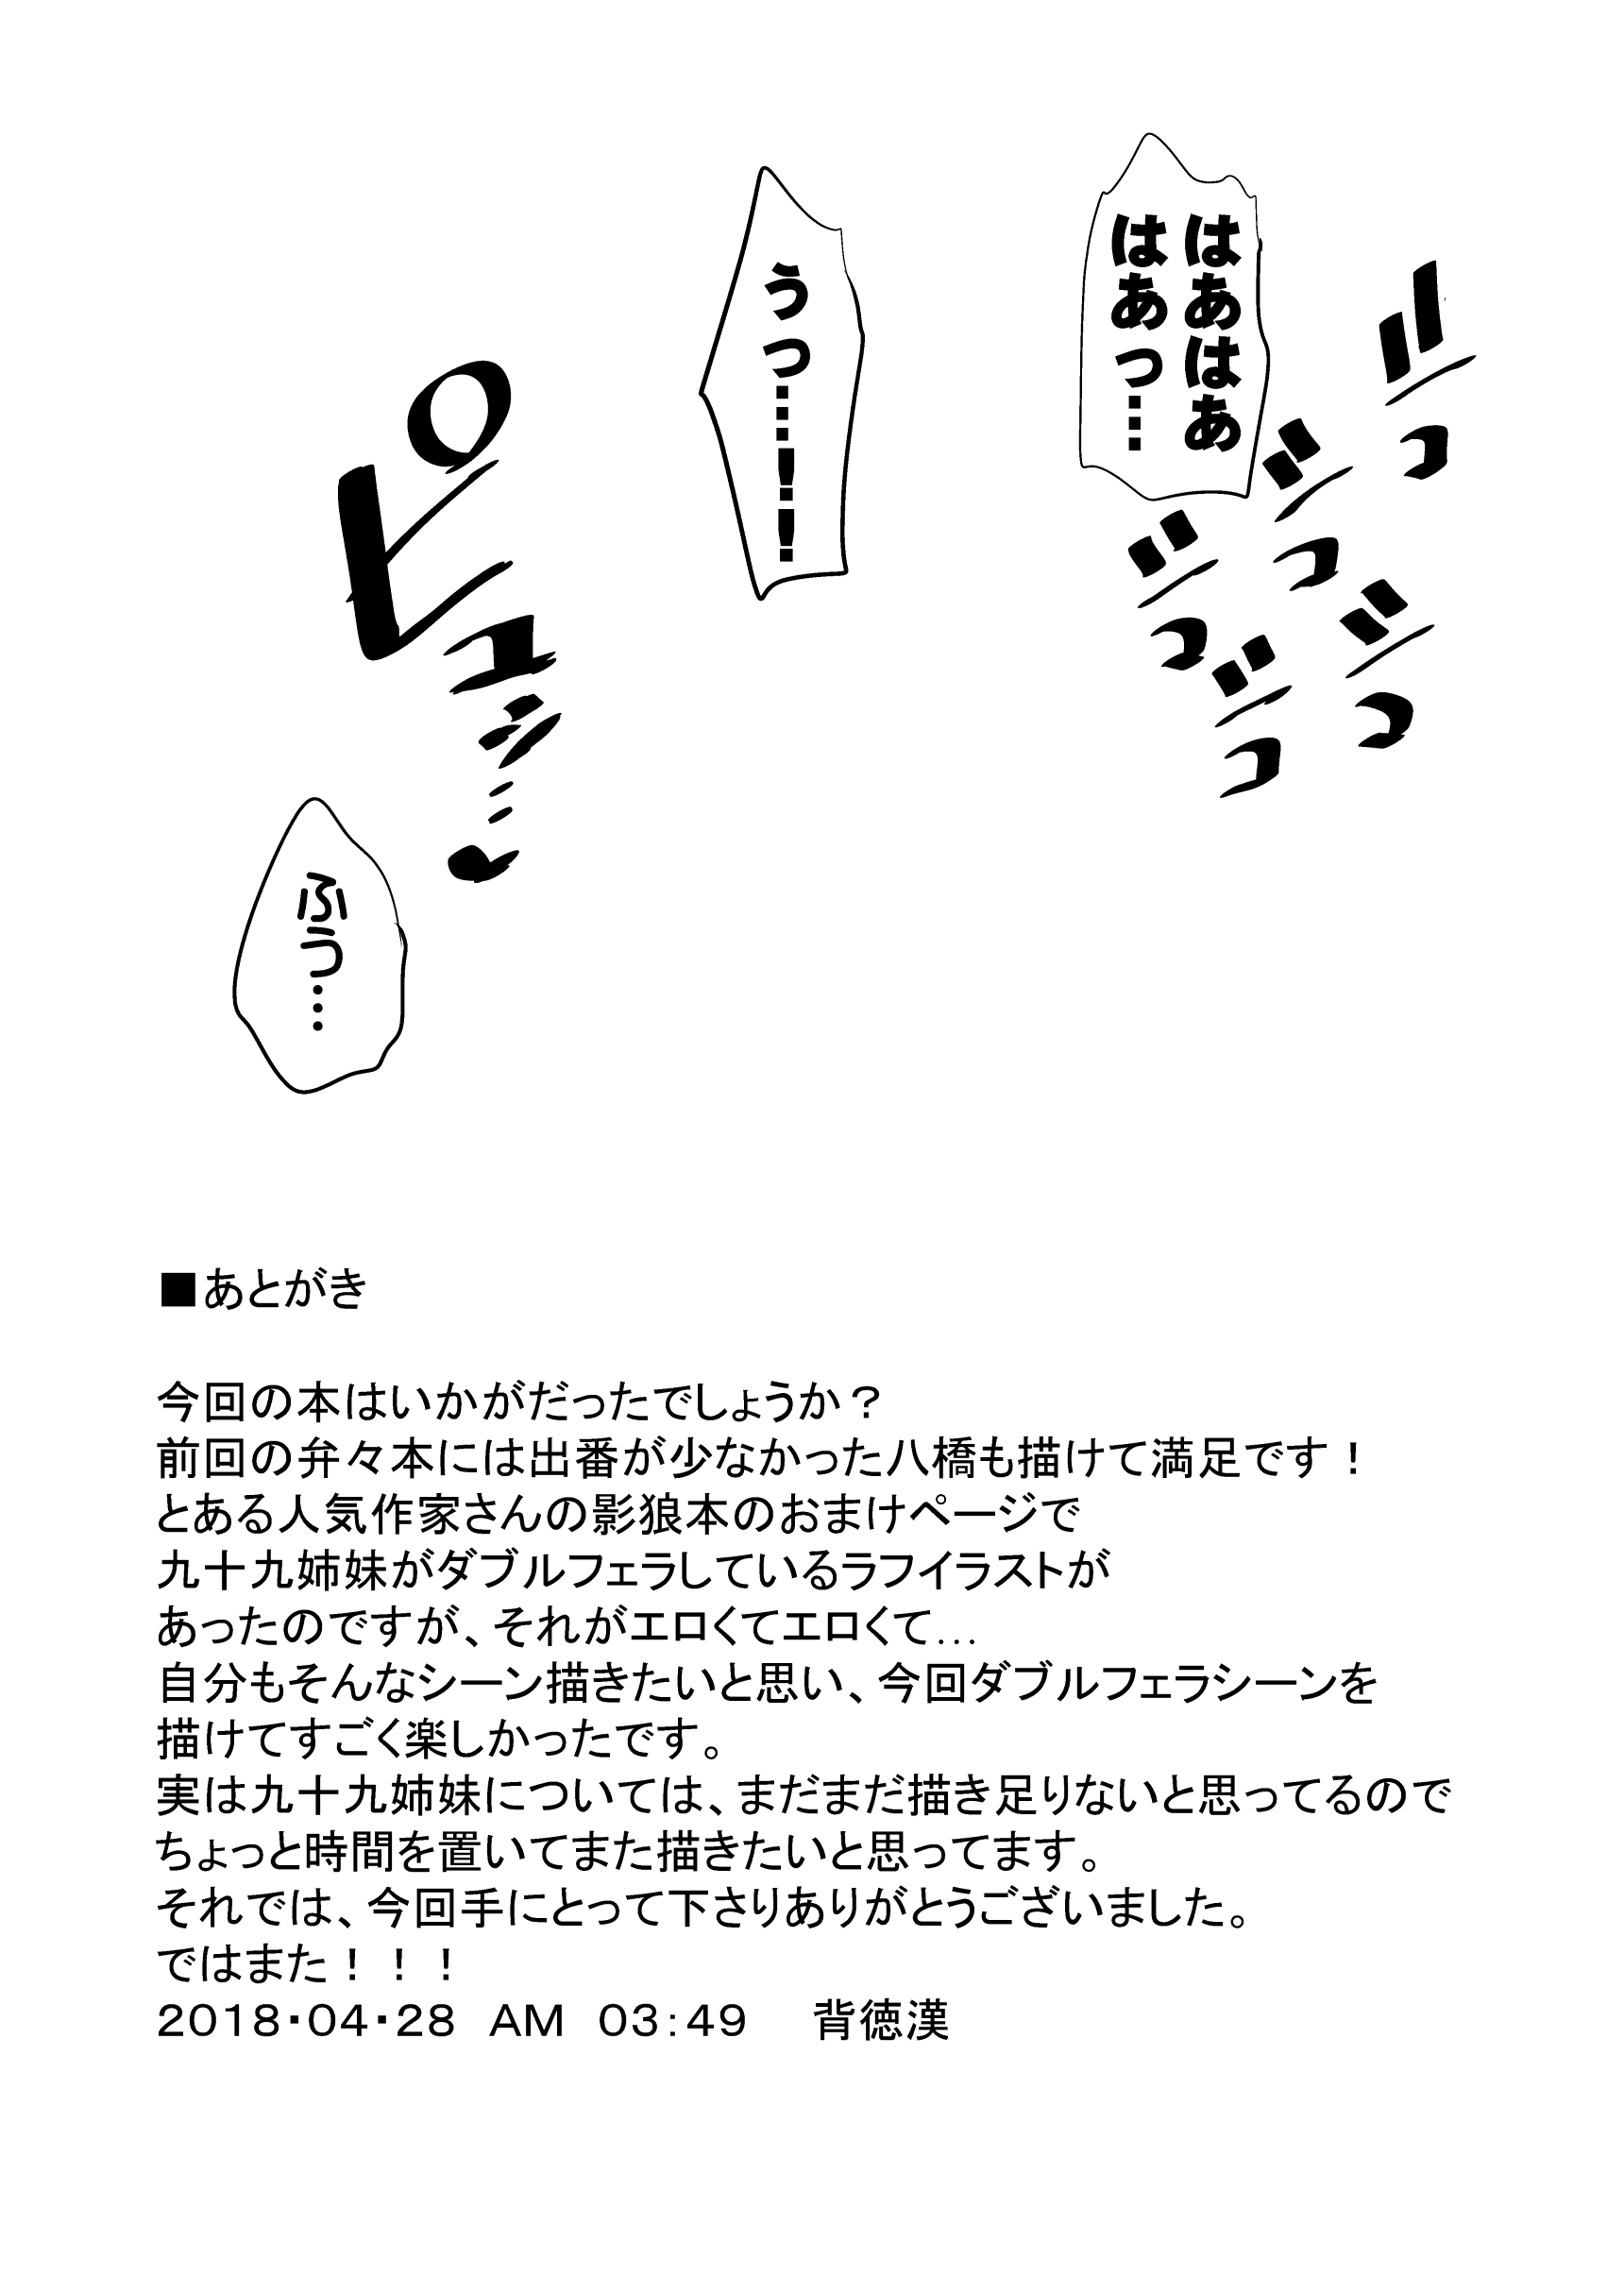 はあはあ
はあっ…
シっ
ジっ
ジっ
ジっ
ジっ
うっ…!!
ピュッ…
ふう…
■あとがき
今回の本はいかがだったでしょうか？
前回の弁々本には出番が少なかった八橋も描けて満足です！
とある人気作家さんの影狼本のおまけページで
九十九姉妹がダブルフェラしているラフイラストが
あったのですが、それがエロくてエロくて…
自分もそんなシーン描きたいと思い、今回ダブルフェラシーンを
描けてすごく楽しかったです。
実は九十九姉妹については、まだまだ描き足りないと思ってるので
ちょっと時間を置いてまた描きたいと思ってます。
それでは、今回手にとって下さりありがとうございました。
ではまた！！！
2018・04・28　AM　03：49　背徳漢